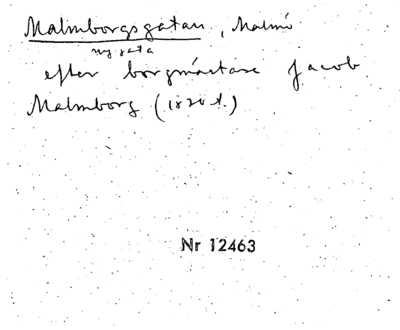 Malmborgsgatan, Malmö
ny gata
efter borgmästare Jacob
Malmborg (1820 t.)
Nr 12463